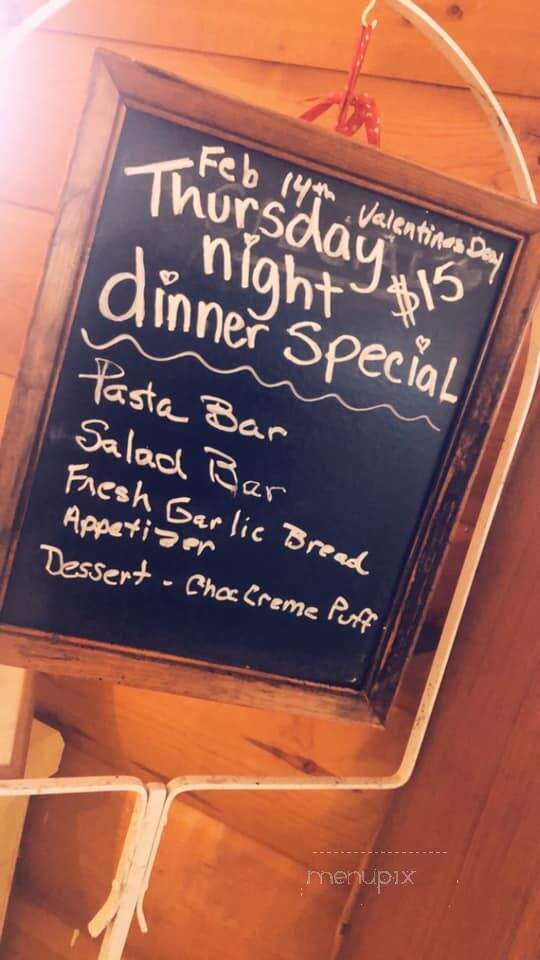 Feb 14th Valentines Day
Thursday
night $15
dinner Special
Pasta Bar
Salad Bar
Fresh Garlic Bread
Appetizer
Dessert - Choc Creme Puff
menupix